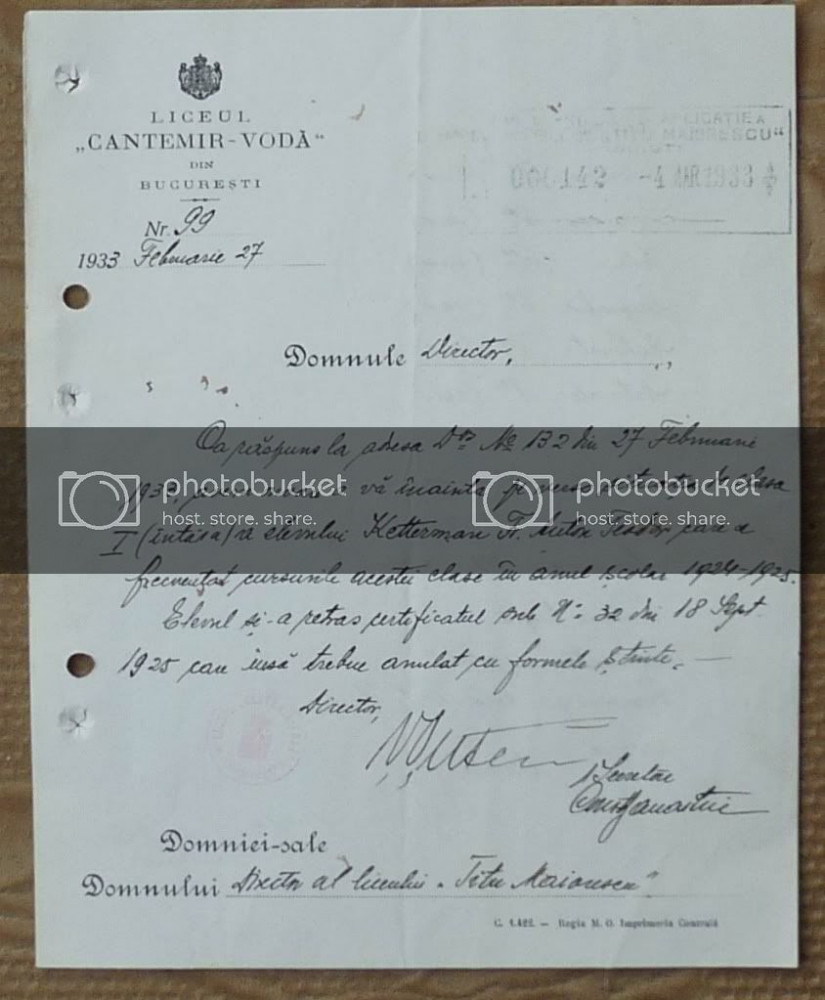 LICEUL
„CANTEMIR-VODĂ“
DIN
BUCUREŞTI
Nr. 99
1933 Februarie 27
APLICAŢIE A
MAIORESCU“
000142 -4 MAR 1933
Domnule Director,
Ca răspuns la adresa Dvs No 132 din 27 Februarie
1933, vă înainta clasa
I (întâia) a elevului Ketterman Fr. Anton Teodor care a
frecventat cursurile acestei clase în anul şcolar 1924-1925.
Elevul şi-a retras certificatul sub No 32 din 18 Sept.
1925 care însă trebue anulat cu formele
Director,
Secretar
Domniei-sale
Domnului Director al liceului „Titu Maiorescu“
C. 1.422. — Regia M. O. Imprimeria Centrală
photobucket
host. store. share.
photobucket
host. store. share.